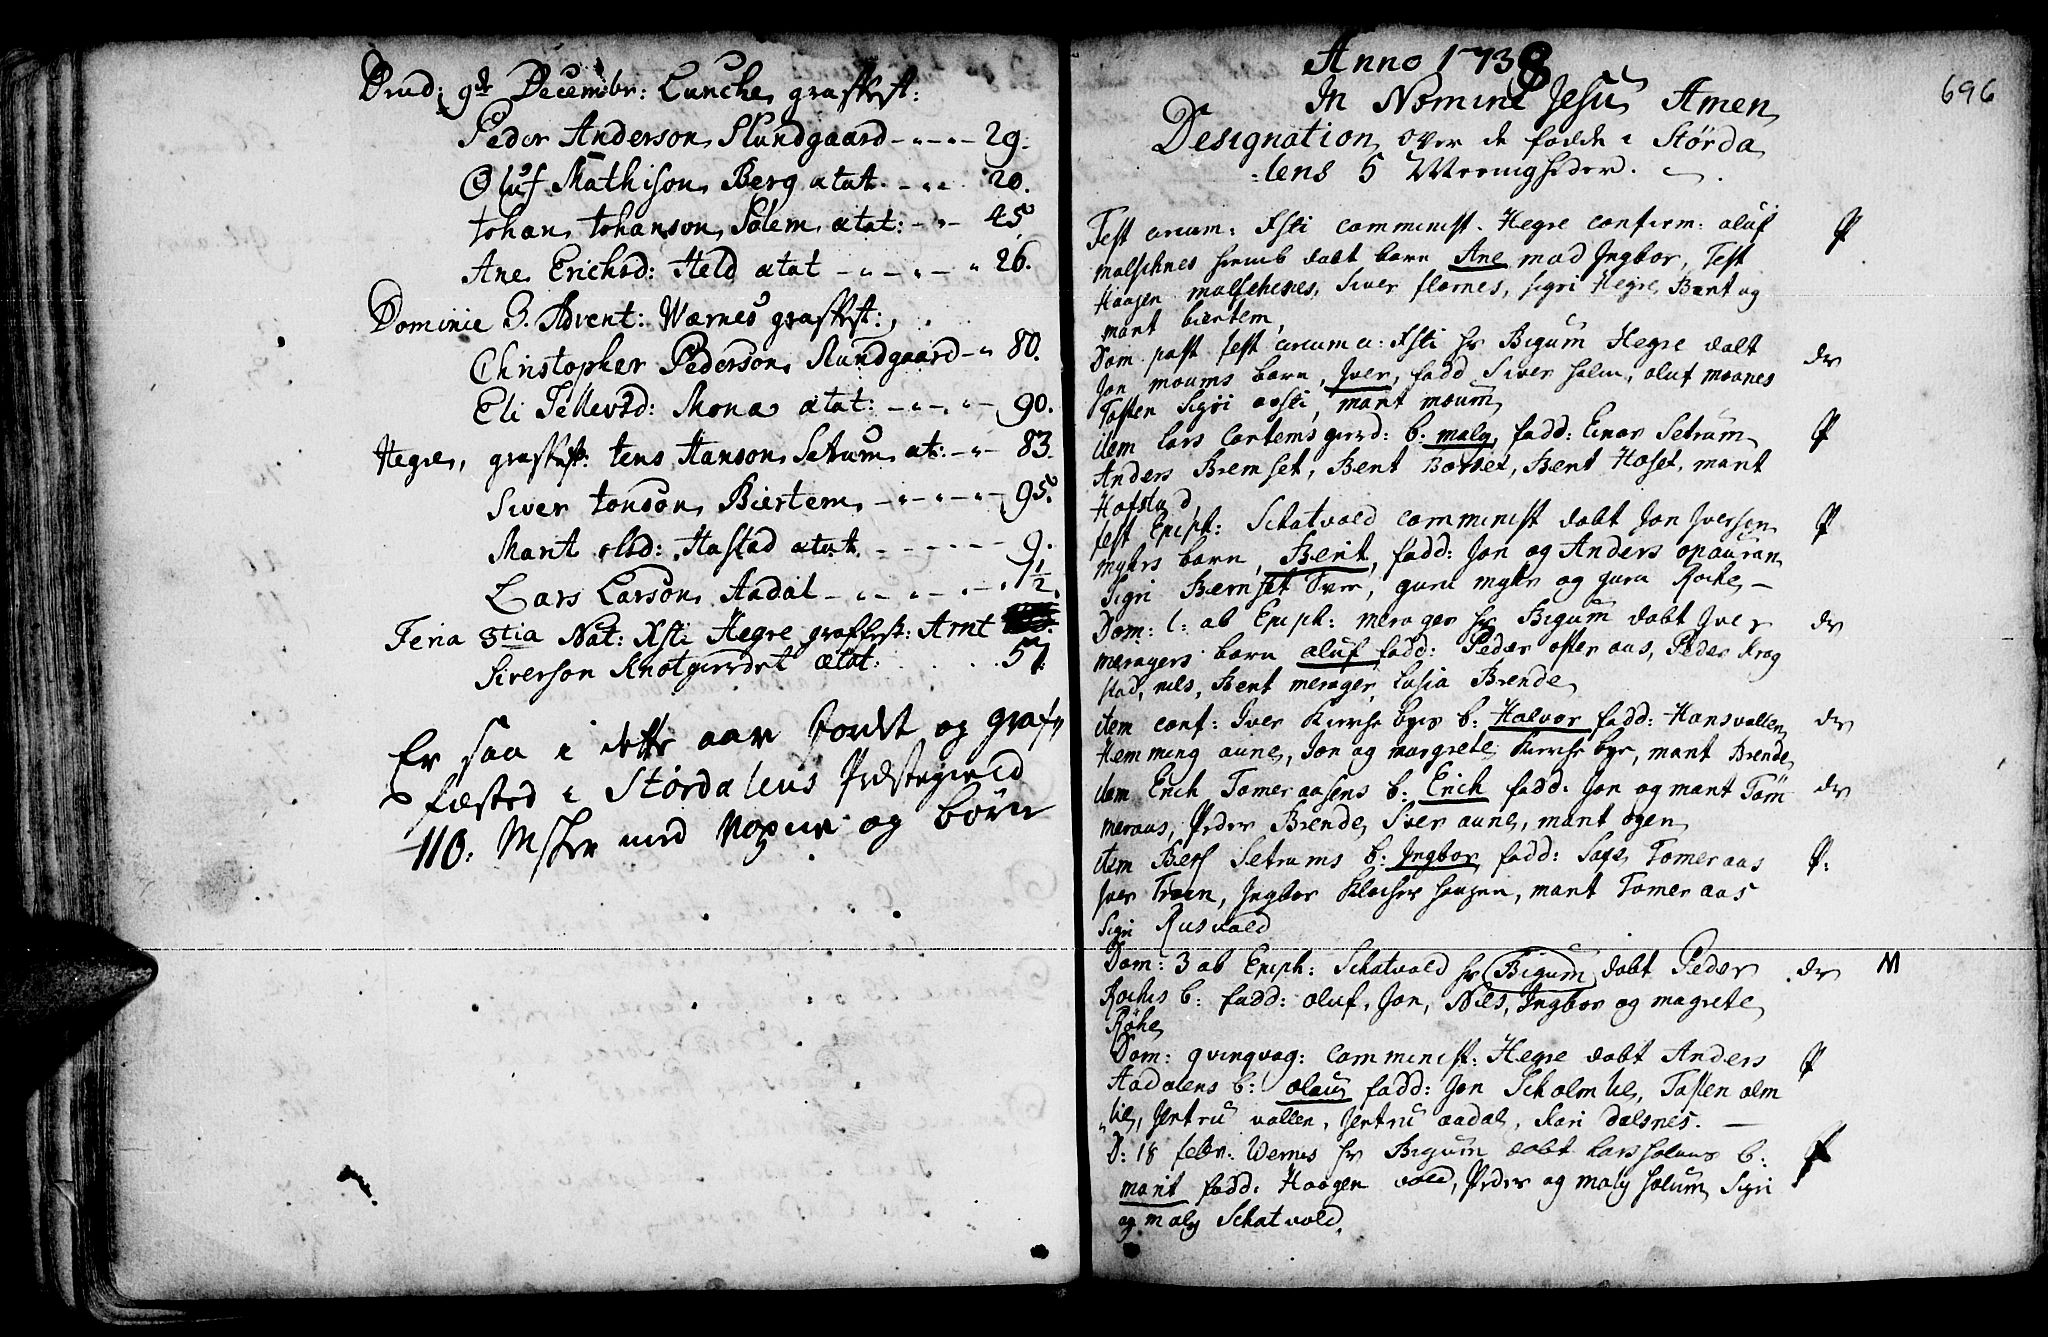 9de Decembr: Lunche grafkst:
Peder Anderson Slundgaard - - - 29.
Oluf Mathison Berg ætat. - - 20.
Johan Johanson Solem ætat: - - 45
Ane Erichsd: Held ætat - - - 26.
Dominie 3. Advent: Wærnes grafkst:
Christopher Pederson Slundgaard - 80.
Eli Tellevsd: Mona ætat: - - - 90.
Hegre, grafkst: Jens Hanson Setum æt: - - 83.
Siver Jonson Biertem - - - - 95.
Marit olsd: Hastad ætat - - - - 9.
Lars Larson Aadal - - - - 1 1/2.
Feria 3tia Nat: Xsti Hegre graffest: Arnt
Siverson ætat: . . . . 51
Er saa i dette aar fordt og graf,,
fæsted i Stördalens Præstegield
110. Msker med Voxne og børn
696
Anno 1738
In Nomine Jesu Amen
Designation over de fødde i Störda
-lens 5 Meenigheder.
Fest circum: Xsti comminist. Hegre confirm: oluf P
dabt barn Ane mod Ingbor, Test
Haagen Siver flornes, Sigri Hegre, Berit og
marit biertem,
Dom post fest circumci: Xsti hr Bigum Hegre dabt dr
Jon moums barn, Iver, fadd Siver holm, oluf moanes
Tosten Sigri marit moum
item Lars b: maly, fadd: Einar Setrum P
Anders Bremset, Bent Bent Hoset, marit
Hofstad
fest Epiph: Schatvold comminist dabt Jon Iversen P
myhrs barn, Berit, fadd: Jon og Anders opauran
Sigri Bernset guru myhr og guru Roche, -
Dom: 1: ab Epiph: merager hr Bigum dabt Iver dr
meragers barn oluf fadd: Peder ofter aas, Peder Krog
stad, nils, Berit merager, Lusia Brende,
item conf: Iver Kirche byes b: Halvor fadd: Hans vollen dr
Hemming aune, Jon og margrete Kirche bye, marit Brende,
item Erich Tomeraasens b: Erich fadd: Jon og marit Tom dr
meraas, Peder Brende, Siver aune, marit ogen
item Setrums b: Ingbor fadd: Tomeraas P.
Iver Ingbor Klocher haugen, marit Tomeraas
Sigri Rusvold
Dom: 3 ab Epiph: Schatvold hr Bigum dabt Peder dr M
Roches b: fadd: oluf, Jon, Nils, Ingbor og magrete
Röhe,
Dom: qvinqvag: comminist: Hegre dabt Anders P
Aadalens b: olaus fadd: Jon Tosten olm
lie, Jertru vollen, Jertru aadal, Kari dalsnes. -
D: 18 febr: Wernes hr Bigum dabt Lars b: P
marit fadd: Haagen vold, Peder og maly holum, Sigri
og maly Schatvold,